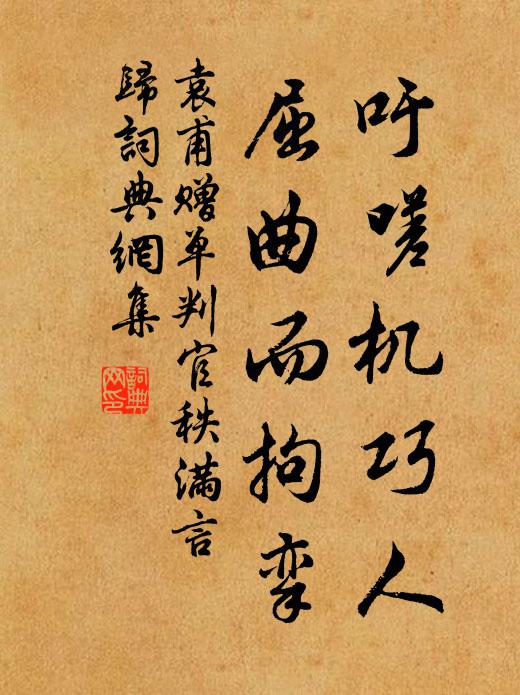 吁嗟机巧人
屈曲而拘挛
袁甫赠单判官秩满言
歸詞典網集
詞典网印